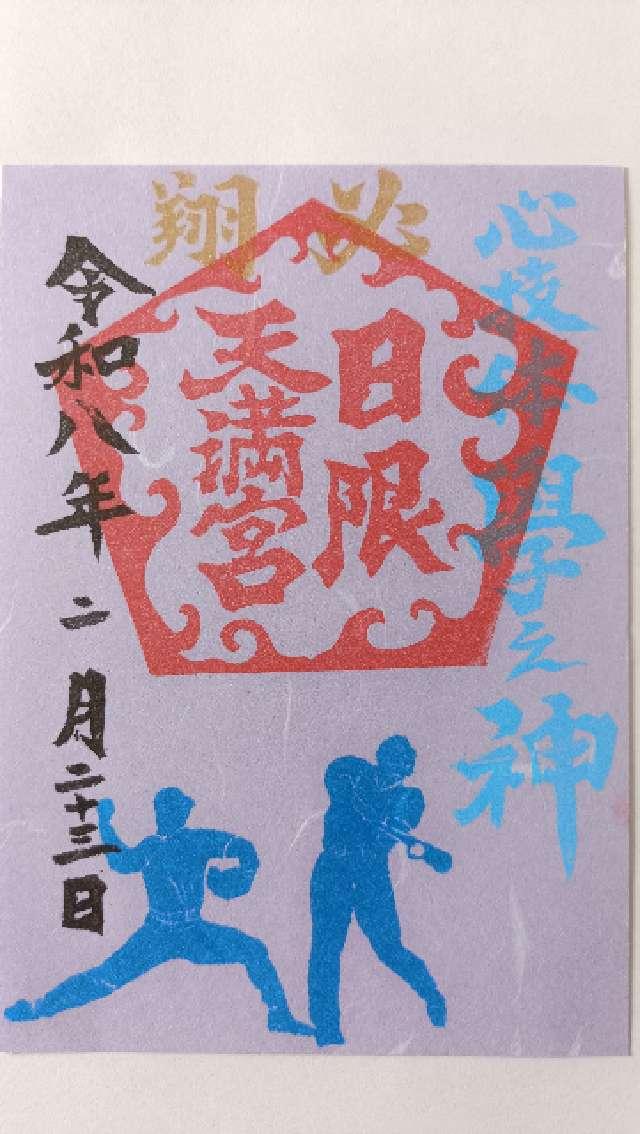 心技体學之神
飛翔
日限
天満宮
令和八年二月二十三日